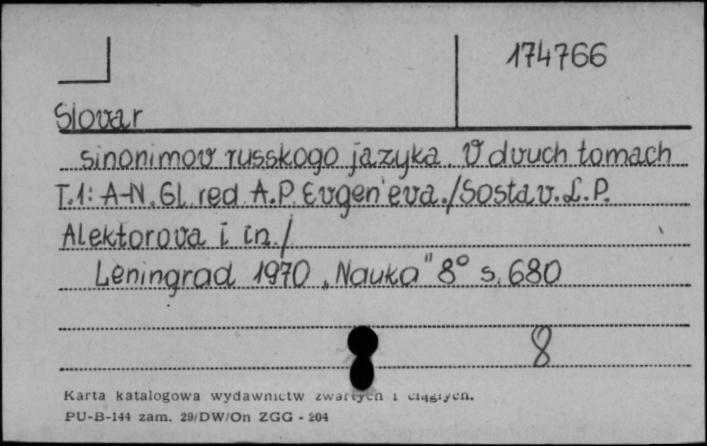 174766
Slovar
sinonimov russkogo jazyka. V dvuch tomach
T.1: A-N. Gl. red. A.P. Evgen'eva. /Sostav. L.P.
Alektorova i in./
Leningrad 1970 „Nauka" 8° s. 680
8
Karta katalogowa wydawnictw zwartych i ciągłych.
PU-B-144 zam. 29/DW/On ZGG - 204